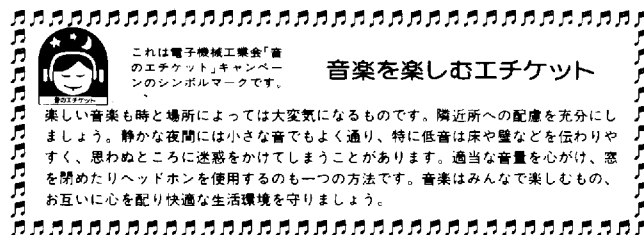 これは電子機械工業会「音
のエチケット」キャンペー
ンのシンボルマークです。
音のエチケット
音楽を楽しむエチケット
楽しい音楽も時と場所によっては大変気になるものです。隣近所への配慮を充分にし
ましょう。静かな夜間には小さな音でもよく通り、特に低音は床や壁などを伝わりや
すく、思わぬところに迷惑をかけてしまうことがあります。適当な音量を心がけ、窓
を閉めたりヘッドホンを使用するのも一つの方法です。音楽はみんなで楽しむもの、
お互いに心を配り快適な生活環境を守りましょう。